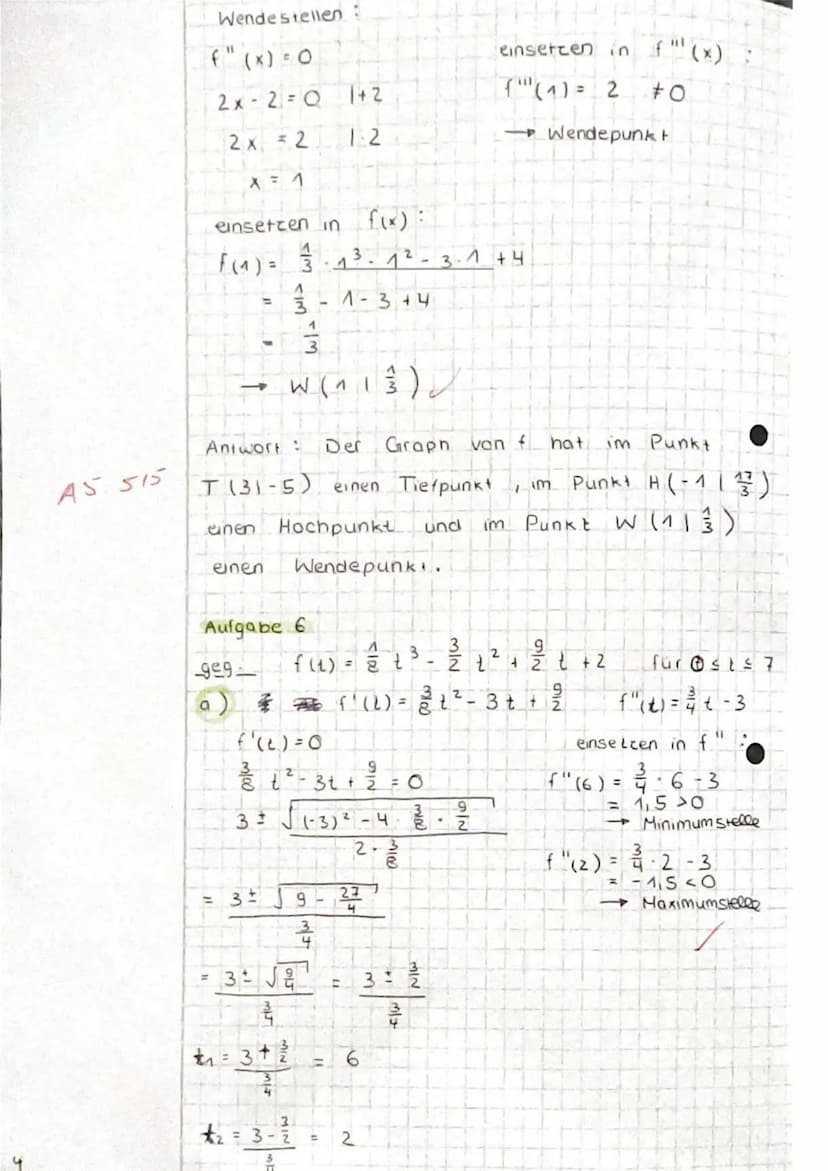 Wendestellen :
f''(x) = 0
2x - 2 = 0 | + 2
2x = 2 | : 2
x = 1
einsetzen in f'''(x) :
f'''(1) = 2 ≠ 0
→ Wendepunkt
einsetzen in f(x) :
f(1) = 1/3 · 1³ - 1² - 3 · 1 + 4
= 1/3 - 1 - 3 + 4
= 1/3
→ W ( 1 | 1/3 ) ✓
Antwort : Der Graph von f hat im Punkt
A5 5/5
T ( 3 | -5 ) einen Tiefpunkt , im Punkt H ( -1 | 17/3 )
einen Hochpunkt und im Punkt W ( 1 | 1/3 )
einen Wendepunkt.
Aufgabe 6
geg. f(t) = 1/8 t³ - 3/2 t² + 9/2 t + 2 für 0 ≤ t ≤ 7
a) f'(t) = 3/8 t² - 3t + 9/2 f''(t) = 3/4 t - 3
f'(t) = 0
3/8 t² - 3t + 9/2 = 0
(3 ± √((-3)² - 4 · 3/8 · 9/2)) / (2 · 3/8)
= (3 ± √(9 - 27/4)) / (3/4)
= (3 ± √(9/4)) / (3/4) = (3 ± 3/2) / (3/4)
t₁ = (3 + 3/2) / (3/4) = 6
t₂ = (3 - 3/2) / (3/4) = 2
einsetzen in f'' :
f''(6) = 3/4 · 6 - 3
= 1,5 > 0
→ Minimumstelle
f''(2) = 3/4 · 2 - 3
= -1,5 < 0
→ Maximumstelle
✓
4